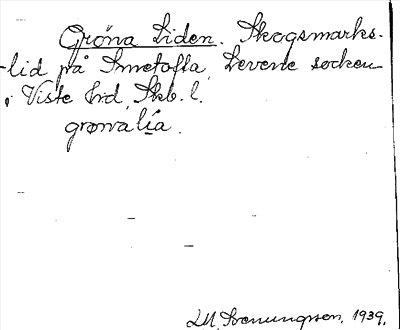 Gröna Liden. Skogsmarks-
lid på Smetofta, Levene socken
i Viste hrd, Skb. l.
grønalia.
LM. Svenungsson, 1939.